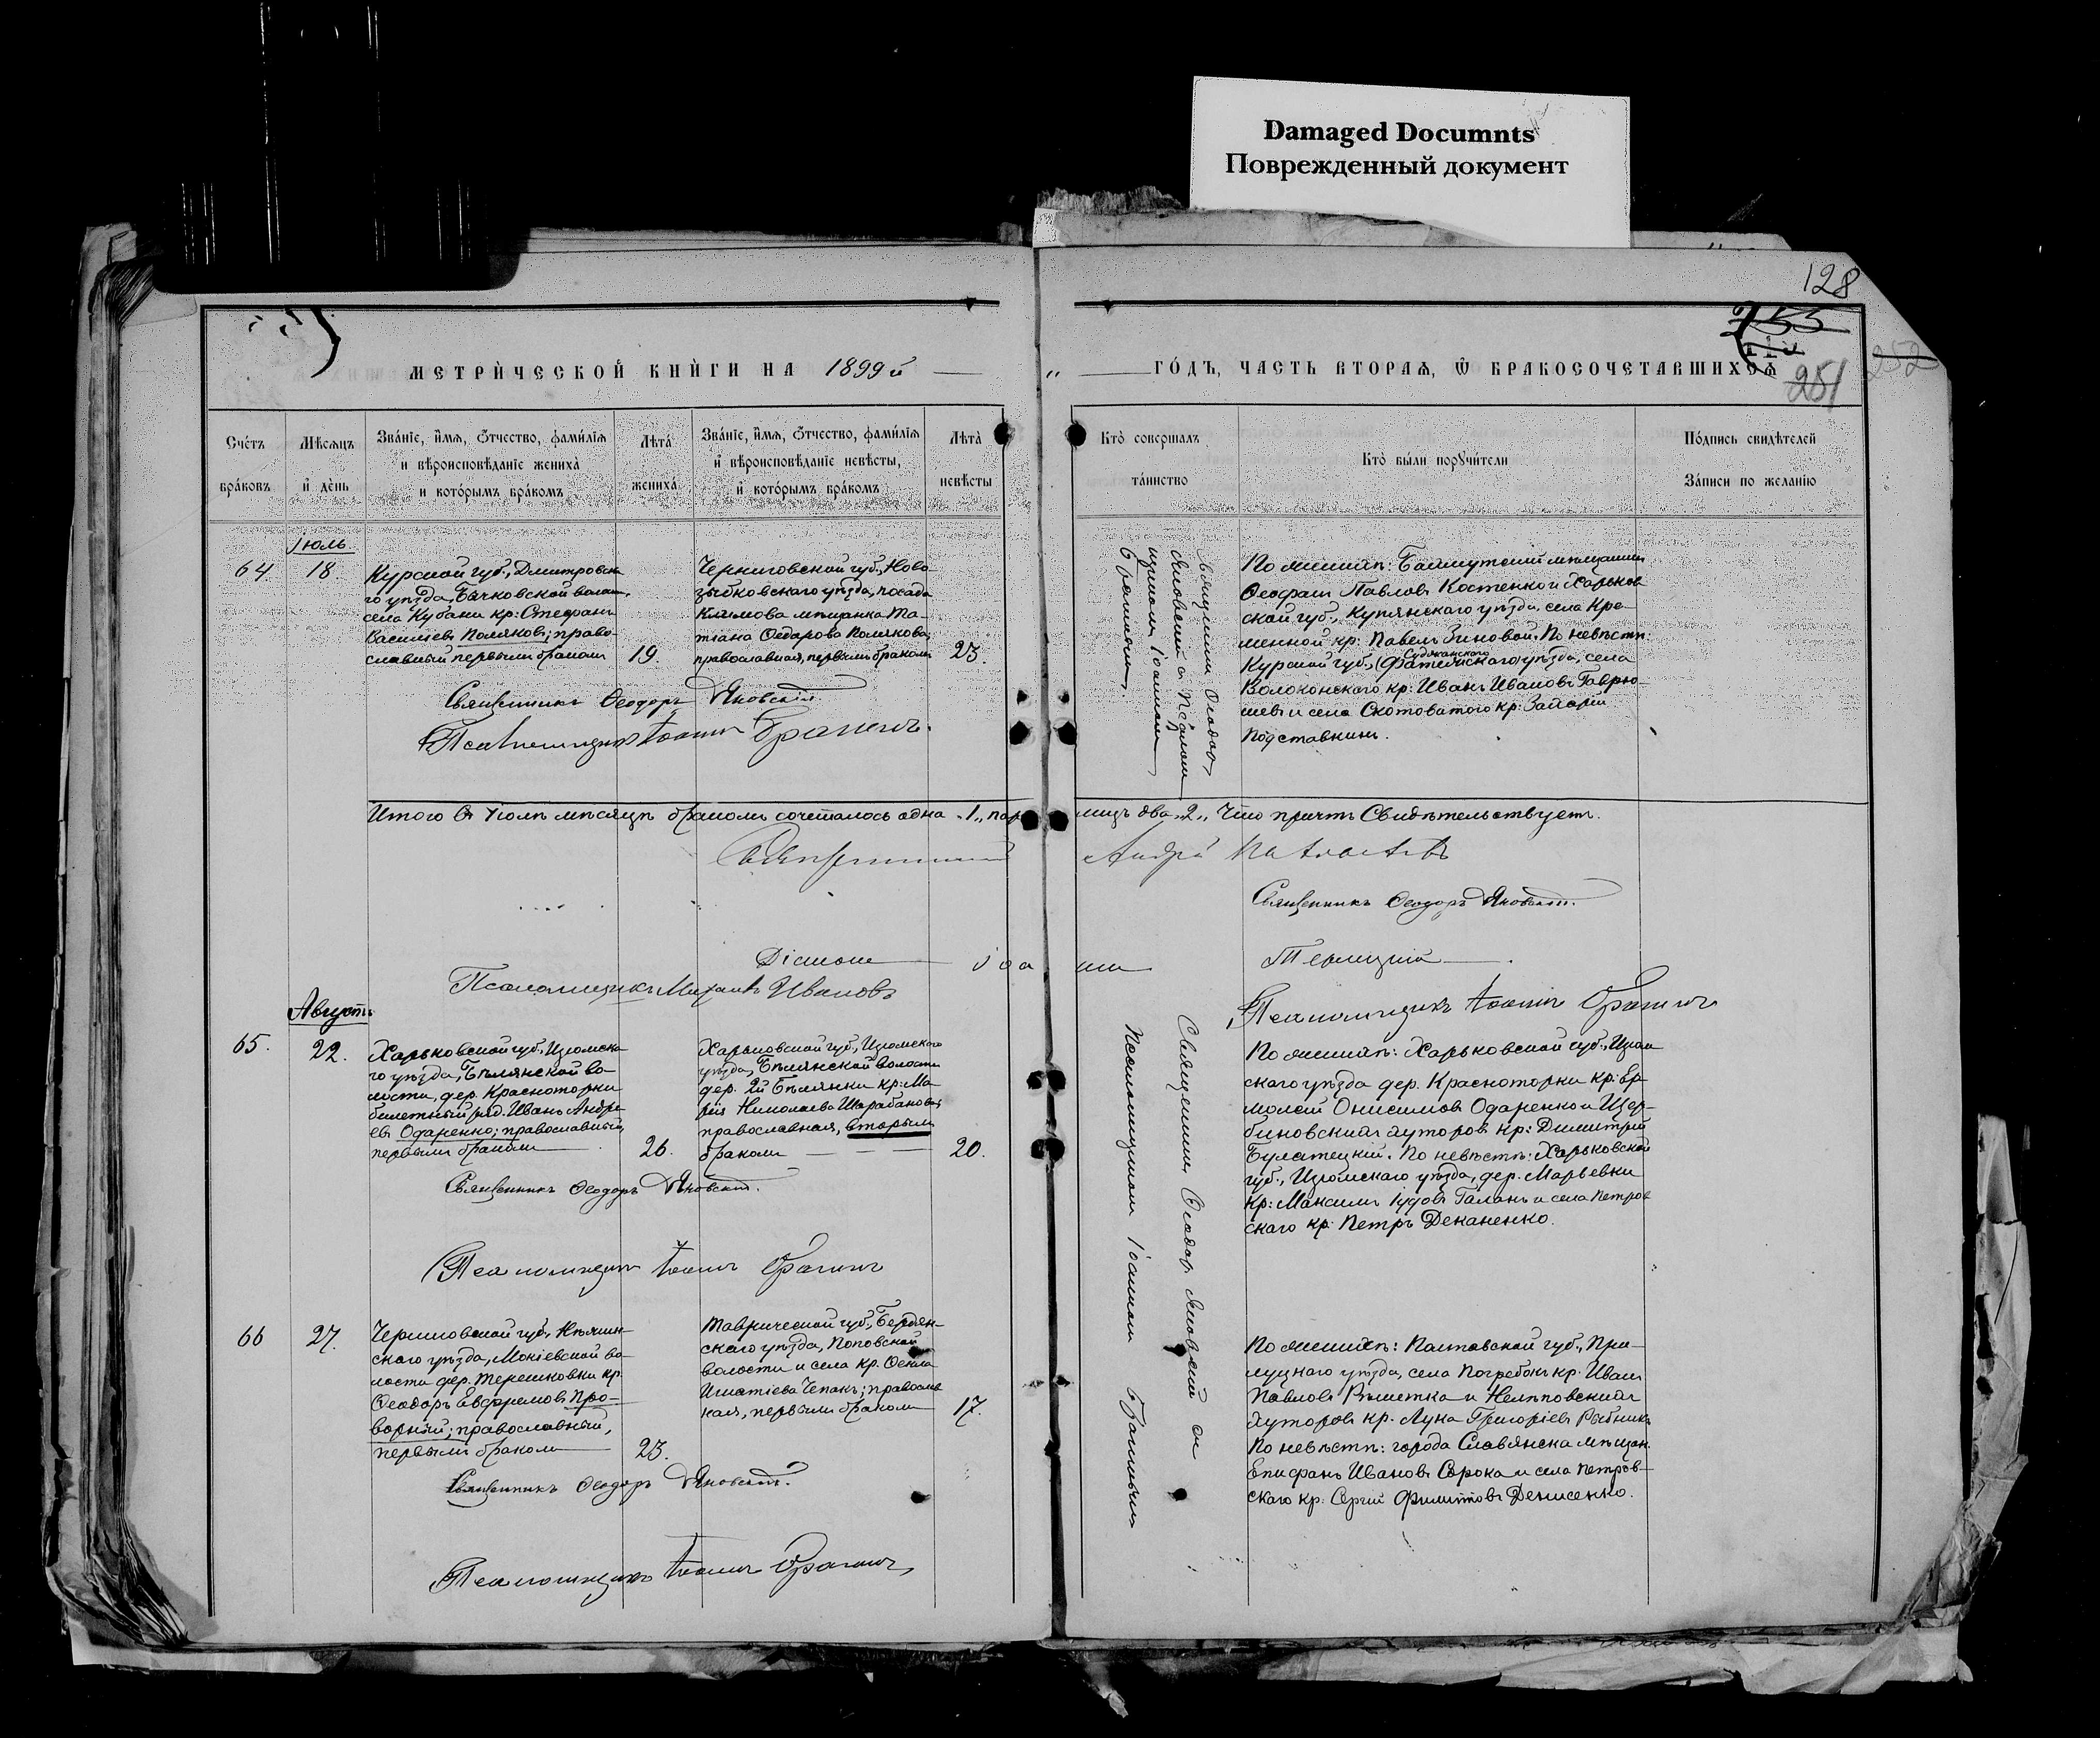 Damaged Documnts
Поврежденный документ
128
251
252
МЕТРИЧЕСКОЙ КНИГИ НА 1899й
ГОДЪ, ЧАСТЬ ВТОРАЯ, Ѿ БРАКОСОЧЕТАВШИХСЯ
Счетъ браковъ
Мѣсяцъ и день
Званіе, имя, отчество, фамилія
и вѣроисповѣданіе жениха
и которымъ бракомъ
Лѣта жениха
Званіе, имя, отчество, фамилія
и вѣроисповѣданіе невѣсты,
и которымъ бракомъ
Лѣта невѣсты
Кто совершалъ
таинство
Кто были поручители
Подпись свидѣтелей
Записи по желанію
Іюль
64
18.
Курской губ., Дмитровска-
го уѣзда, Бычковской волост.
села Кубани кр: Стефанъ
Васильевъ Поляковъ; право-
славный первымъ бракомъ
19.
Черниговской губ., Ново-
зыбковскаго уѣзда, посада
Климова мѣщанка Та-
тіана Ѳедорова Полякова,
православная, первымъ бракомъ
23.
Священникомъ Ѳеодор.
Яновскимъ съ Псалом
щикомъ Іоанномъ
По женихѣ: Бахмутскій мѣщанинъ
Ѳеофанъ Павловъ Костенко и Харьков
ской губ., Купянскаго уѣзда, села Кре-
менной кр: Павелъ Биновой. По невѣстѣ:
Суджанскаго
Курской губ., (Фатежскаго) уѣзда, села
Волоконскаго кр: Иванъ Ивановъ Гаврю-
шевъ и села Скотоватого кр: Захарій
Подставкинъ.
Священникъ Ѳеодоръ Яновскій
Псаломщикъ Іоаннъ
Итого въ Іюлѣ мѣсяцѣ бракомъ сочеталось одна „1„ пар
лицъ два „2„ Что причтъ Свидѣтельствуетъ.
Священникъ Андрей
Священникъ Ѳеодоръ Яновскій.
Діаконъ Іоаннъ
Псаломщикъ Михаилъ Ивановъ
Псаломщикъ Іоаннъ
Августъ
65.
22.
Харьковской губ., Изюмска-
го уѣзда, Бѣлянской во-
лости, дер. Красноторки
билетный ряд. Иванъ Андре
евъ Одаренко; православный,
первымъ бракомъ
26.
Харьковской губ., Изюмскаго
уѣзда, Бѣлянской волости
дер. 2й Бѣлянки кр: Ма-
рія Николаева Шарабанова,
православная, вторымъ
бракомъ
20.
Священникъ Ѳеодор. Яновскій съ
Псаломщикомъ Іоанномъ
По женихѣ: Харьковской губ., Изюм
скаго уѣзда дер. Красноторки кр: Ер-
молай Онисимовъ Одаренко и Щер-
биновскихъ хуторовъ кр: Димитрій
Булатецкій. По невѣстѣ: Харьковской
губ., Изюмскаго уѣзда, дер. Марьевки
кр: Максимъ Іудовъ Галанъ и села Петров
скаго кр: Петръ Деканенко.
Священникъ Ѳеодоръ Яновскій.
Псаломщикъ Іоаннъ
66
27.
Черниговской губ., Нѣжин-
скаго уѣзда, Мокіевской во-
лости дер. Терешковки кр.
Ѳеодоръ Евфремовъ Про-
ворный; православный,
первымъ бракомъ
23.
Таврической губ., Бердян-
скаго уѣзда, Поповской
волости и села кр. Ѳекла
Игнатіева Чепакъ; православ
ная, первымъ бракомъ
17.
По женихѣ: Полтавской губ., При-
лукскаго уѣзда, села Погребокъ кр. Иванъ
Павловъ Рѣшетка и Нелѣповскихъ
хуторовъ кр. Лука Григоріевъ Рыбникъ
По невѣстѣ: города Славянска мѣщан.
Епифанъ Ивановъ Сорока и села Петров-
скаго кр. Сергій Филиповъ Денисенко.
Священникъ Ѳеодоръ Яновскій.
Псаломщикъ Іоаннъ